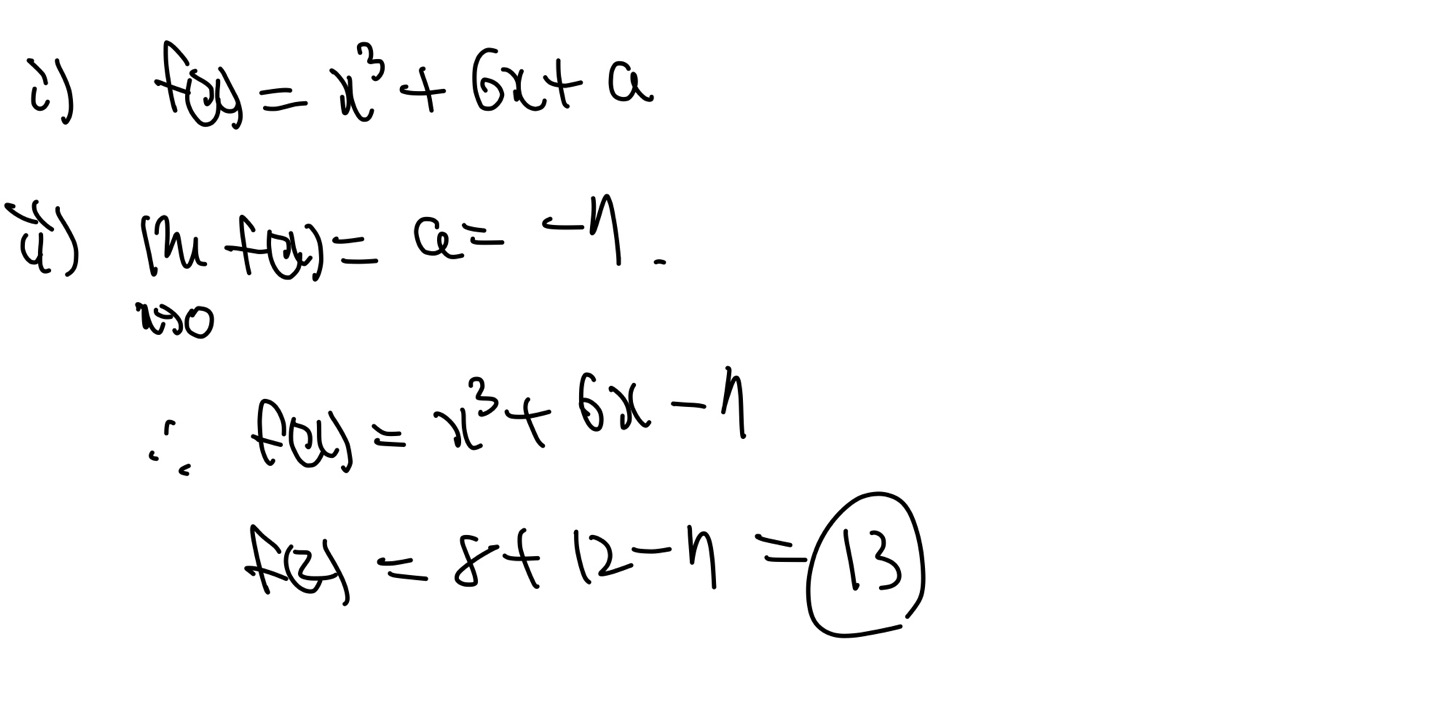 i) f(x) = x³ + 6x + a
ii) lim f(x) = a = -7.
x→0
∴ f(x) = x³ + 6x - 7
f(2) = 8 + 12 - 7 = 13